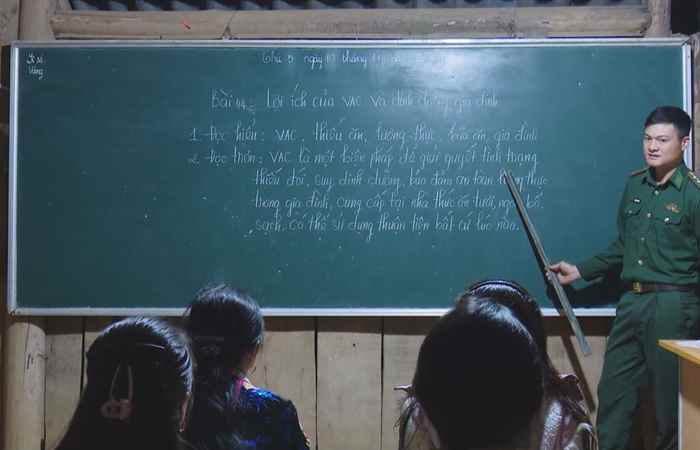 Sĩ số:
Vắng
Thứ 5 ngày 17 tháng
Bài 44: Lợi ích của VAC và dinh dưỡng gia đình
1. Đọc hiểu: VAC, thiếu ăn, lương thực, bữa ăn, gia đình
2. Đọc trơn: VAC là một biện pháp để giải quyết tình trạng
thiếu đói, suy dinh dưỡng, bảo đảm an toàn thực
trong gia đình, cung cấp tại nhà thức ăn tươi, ngon, bổ,
sạch, có thể sử dụng thuận tiện bất cứ lúc nào.